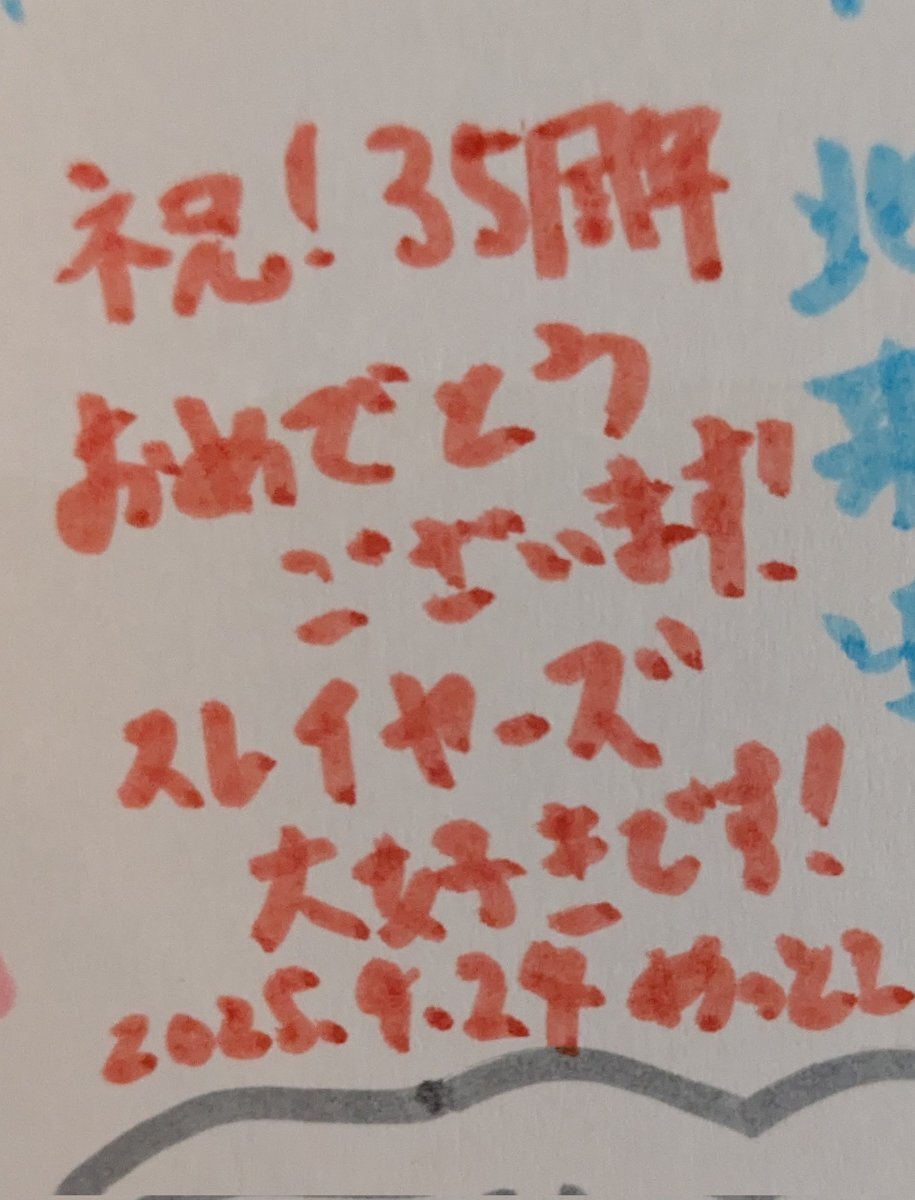 祝!35周年
おめでとう
ございます!
スレイヤーズ
大好きです!
2025.9.24 めっとと
北